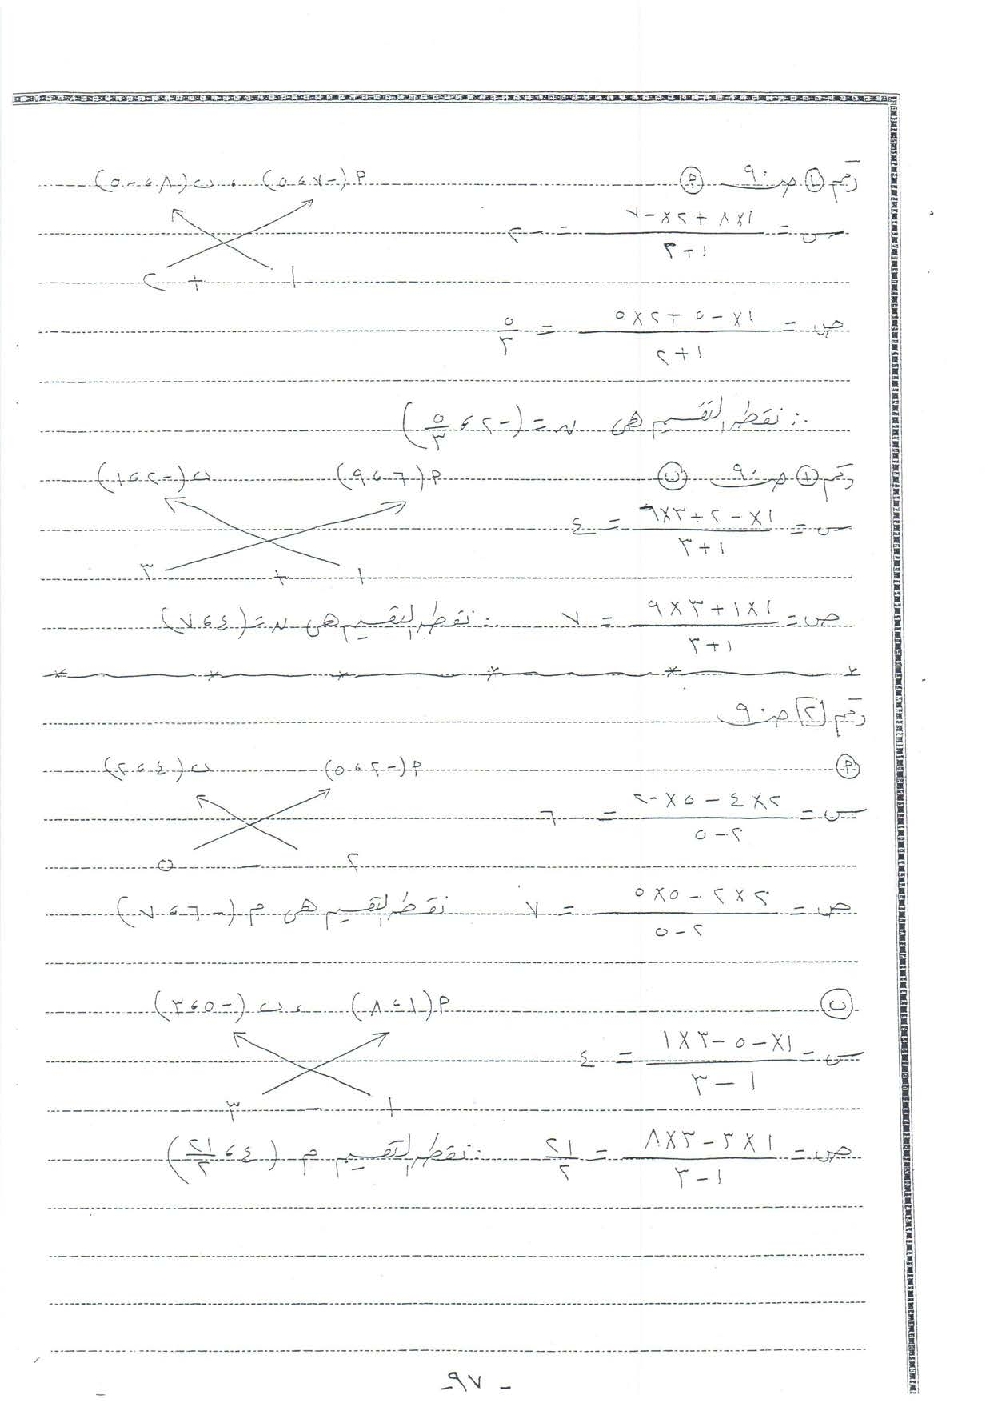 رقم ١ ص ٩٠ (أ) أ(-٧، ٥) ، ب(٨، -٥)
س = (١×٨ + ٢×-٧) / (١+٢) = -٢
١ + ٢
ص = (١×-٥ + ٢×٥) / (١+٢) = ٥/٣
∴ نقطة التقسيم هى ن = (-٢، ٥/٣)
رقم ١ ص ٩٠ (ب) أ(٦، ٩) ب(-٢، ١)
س = (١×-٢ + ٣×٦) / (١+٣) = ٤
١ + ٣
ص = (١×١ + ٣×٩) / (١+٣) = ٧ ∴ نقطة التقسيم هى ن = (٤، ٧)
رقم ٢ ص ٩٠
(أ) أ(-٢، ٥) ب(٤، ٢)
س = (٢×٤ - ٥×-٢) / (٢-٥) = ٦
٢ - ٥
ص = (٢×٢ - ٥×٥) / (٢-٥) = ٧ نقطة التقسيم هى م (-٦، ٧)
(ب) أ(١، ٨) ، ب(-٥، ٣)
س = (١×-٥ - ٣×١) / (١-٣) = ٤
١ - ٣
ص = (١×٣ - ٣×٨) / (١-٣) = ٢١/٢ ∴ نقطة التقسيم م (٤، ٢١/٢)
- ٩٧ -